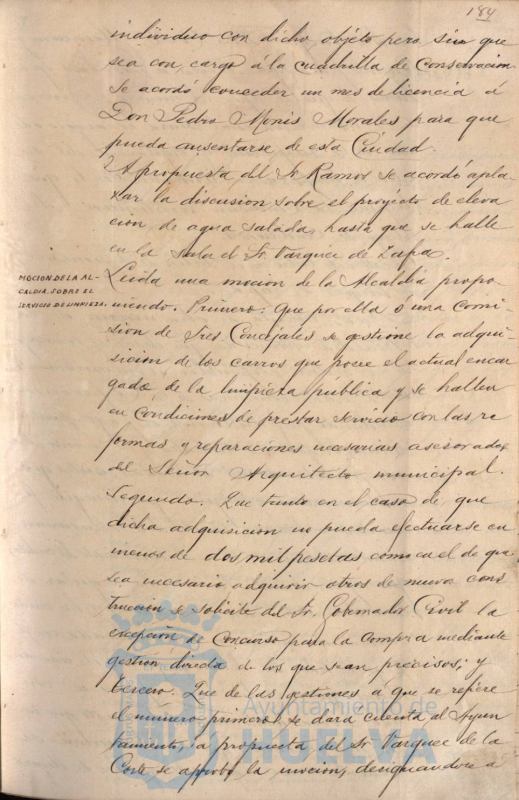 184
individuo con dicho objeto pero sin que
sea con cargo á la cuadrilla de Conservacion
Se acordó conceder un mes de licencia á
Don Pedro Monis Morales para que
pueda ausentarse de esta Ciudad.
A propuesta del Sr. Ramos se acordó apla-
zar la discusion sobre el proyecto de eleva
cion de agua salada, hasta que se halle
en la sala el Sr. Vazquez de Zafra.
MOCION DE LA AL-
CALDIA, SOBRE EL
SERVICIO DE LIMPIEZA.
Leida una mocion de la Alcaldia propo-
niendo. Primero: Que por ella ó una Comi
sion de Tres Concejales se gestione la adqui-
sicion de los carros que posee el actual encar
gado de la limpieza publica y se hallen
en Condiciones de prestar servicio con las re
formas y reparaciones necesarias asesorados
del Señor Arquitecto municipal.
Segundo. Que tanto en el caso de que
dicha adquisicion no pueda efectuarse en
menos de dos mil pesetas como en el de que
sea necesario adquirir otros de nueva cons
truccion se solicite del Sr. Gobernador Civil la
excepcion de Concurso para la compra mediante
gestion directa de los que sean precisos; y
tercero. Que de las gestiones á que se refiere
el número primero se dara cuenta al Ayun
tamiento, a propuesta del Sr. Vazquez de la
Corte se aprobó la mocion, designandose á
Ayuntamiento de
HUELVA